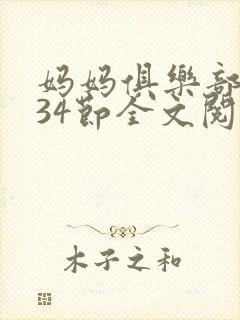 妈妈俱樂部
34節全文閱
木子之和